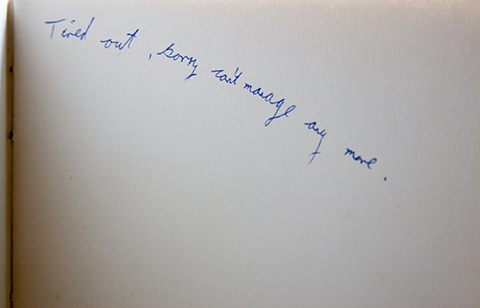 Tired out, sorry can't manage any more.